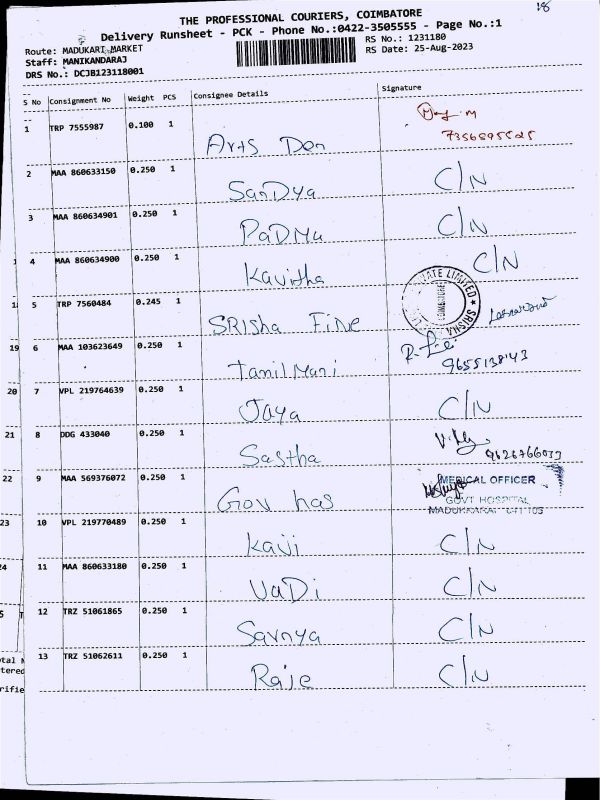 18
THE PROFESSIONAL COURIERS, COIMBATORE
Delivery Runsheet - PCK - Phone No.:0422-3505555 - Page No.:1
Route: MADUKARI MARKET
RS No.: 1231180
Staff: MANIKANDARAJ
RS Date: 25-Aug-2023
DRS No.: DCJB123118001
S No Consignment No Weight PCS Consignee Details Signature
1 TRP 7555987 0.100 1 Arts Den
7356895525
2 MAA 860633150 0.250 1 SanDya C/N
3 MAA 860634901 0.250 1 PaDMa C/N
4 MAA 860634900 0.250 1 Kavitha C/N
5 TRP 7560484 0.245 1 SRISha Fine
19 6 MAA 103623649 0.250 1 Tamil Mani 9655138143
20 7 VPL 219764639 0.250 1 Jaya C/N
21 8 DDG 433040 0.250 1 Sastha
22 9 MAA 569376072 0.250 1 Gov has MEDICAL OFFICER
GOVT HOSPITAL
23 10 VPL 219770489 0.250 1 Kavi C/N
24 11 MAA 860633180 0.250 1 VaDi C/N
12 TRZ 51061865 0.250 1 Savnya C/N
13 TRZ 51062611 0.250 1 Raje C/N